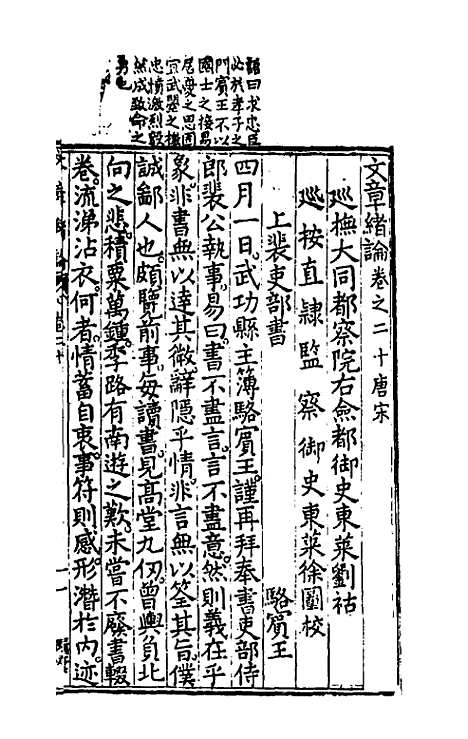 語曰求忠臣
必於孝子之
門賓王不以
國士之換易
尾憂之思固
宜武曌之檄
忠憤激烈毅
然成敗命之
勇也
文章緒論卷之二十唐宋
巡撫大同都察院右僉都御史東萊劉祜
巡按直隸監察御史東萊徐圖校
上裴吏部書
駱賓王
四月一日武功縣主簿駱賓王謹再拜奉書吏部侍
郎裴公執事易曰書不盡言言不盡意然則義在乎
象非書無以達其微辭隱乎情非言無以筌其旨僕
誠鄙人也頗覽前事每讀書見高堂九仞曾輿負北
向之悲積粟萬鍾季路有南遊之歎未嘗不廢書輟
卷流涕沾衣何者情蓄自衷事符則感形潛於內迹